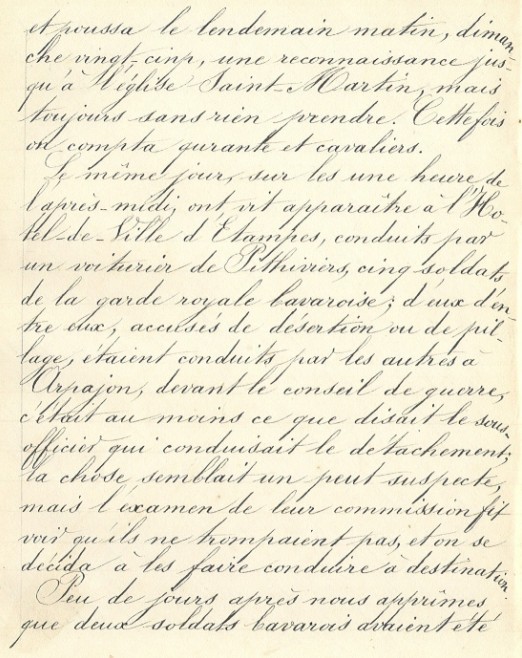 et poussa le lendemain matin, diman-
che vingt-cinp, une reconnaissance jus-
qu'à l'église Saint-Martin, mais
toujours sans rien prendre. Cette fois
on compta qurante et cavaliers.
Le même jour, sur les une heure de
l'après-midi, ont vit apparaître à l'Ho-
tel-de-Ville d'Etampes, conduits par
un voiturier de Pithiviers, cinq soldats
de la garde royale bavaroise; d'eux d'en-
tre eux, accusés de désertion ou de pil-
lage, étaient conduits par les autres à
Arpajon, devant le conseil de guerre,
c'était au moins ce que disait le sous-
officier qui conduisait le détachement;
la chose semblait un peut suspecte,
mais l'éxamen de leur commission fit
voir qu'ils ne trompaient pas, et on se
décida à les faire conduire à destination.
Peu de jours après nous apprîmes
que deux soldats bavarois avaient été